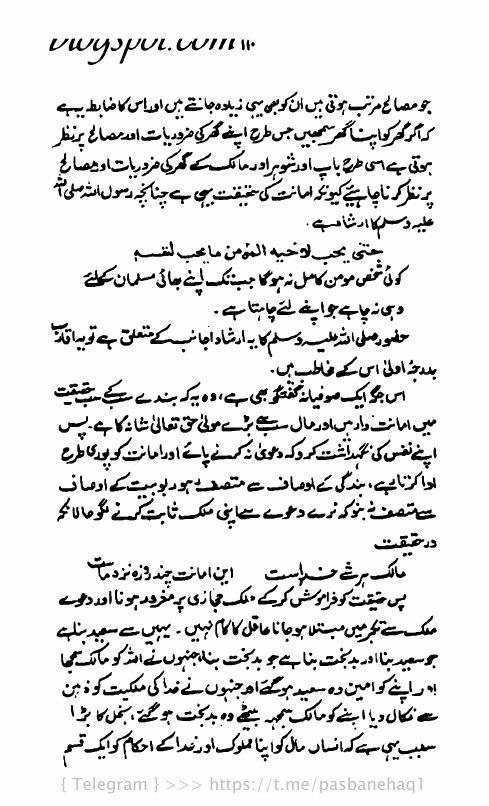 blogspot.com ۱۱۰
جو مصالح مرتب ہوتی ہیں ان کو بھی یہی زیادہ جانتے ہیں اور اس کا ضابطہ یہ ہے
کہ اگر گھر کو اپنا گھر سمجھیں جس طرح اپنے گھر کی ضروریات اور مصالح پر نظر
ہوتی ہے اسی طرح باپ اور شوہر اور مالک کے گھر کی ضروریات اور مصالح
پر نظر کرنا چاہیئے کیونکہ امانت کی حقیقت یہی ہے چنانچہ رسول اللہ صلی اللہ
علیہ وسلم کا ارشاد ہے۔
حتی یحب لاخیہ المؤمن ما یحب لنفسہ
کوئی شخص مومن کامل نہ ہوگا جب تک اپنے بھائی مسلمان کیلئے
وہی نہ چاہے جو اپنے لئے چاہتا ہے۔
حضور صلی اللہ علیہ وسلم کا یہ ارشاد اجانب کے متعلق ہے تو یہ اقارب
بدرجہ اولیٰ اس کے مخاطب ہیں۔
اس جگہ ایک صوفیانہ گفتگو بھی ہے، وہ یہ کہ بندے سب کے سب حقیقت
میں امانت دار ہیں اور مال سب بڑے مولیٰ حق تعالیٰ شانہ کا ہے۔ پس
اپنے نفس کی نگہداشت کرو کہ دعویٰ نہ کرنے پائے اور امانت کو پوری طرح
ادا کرتا رہے، بندگی کے اوصاف سے متصف ہو ربوبیت کے اوصاف
سے متصف نہ بنو کہ نرے دعوے سے اپنی ملک ثابت کرنے لگو حالانکہ
در حقیقت
مالک ہر شے خداست این امانت چند روزہ نزد ماست
پس حقیقت کو فراموش کرکے ملک مجازی پر مغرور ہونا اور دعوے
ملک سے تکبر میں مبتلا ہو جانا عاقل کا کام نہیں۔ یہیں سے سعید بنا ہے
جو سعید بنا اور بدبخت بنا ہے جو بدبخت بنا، جنہوں نے اللہ کو مالک سمجھا
اور اپنے کو امین وہ سعید ہوگئے اور جنہوں نے خدا کی ملکیت کو ذہن
سے نکال دیا اپنے کو مالک سمجھ بیٹھے وہ بدبخت ہوگئے، بخل کا بڑا
سبب یہی ہے کہ انسان مال کو اپنا مملوک اور خدا کے احکام کو ایک قسم
{ Telegram } >>> https://t.me/pasbanehaq1